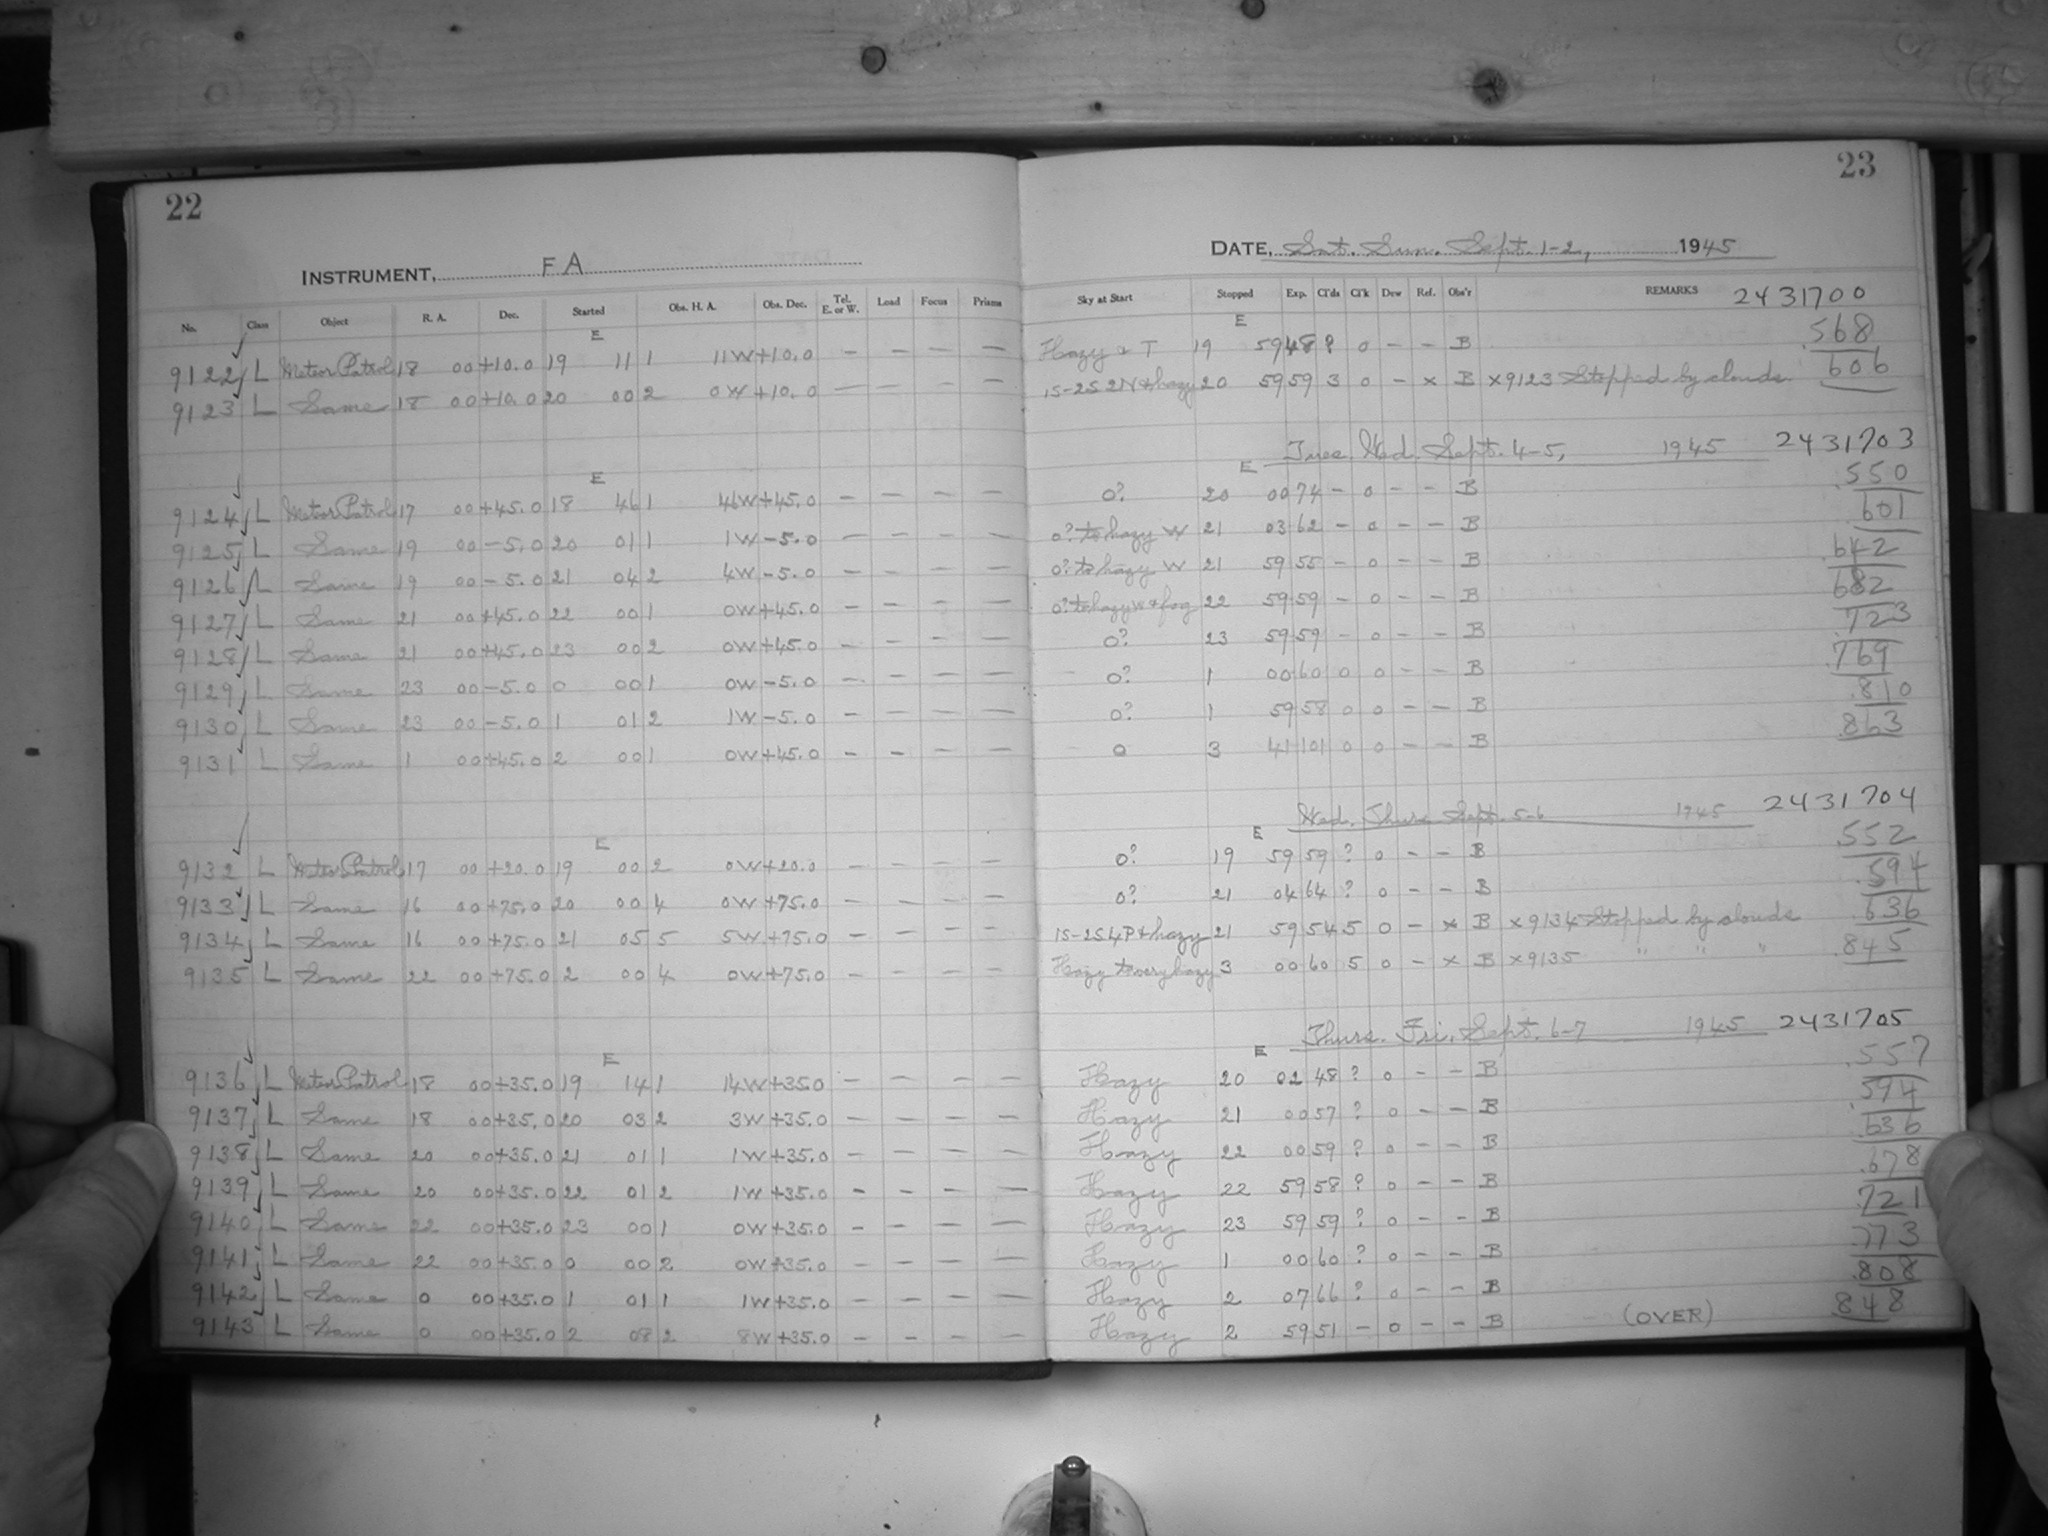 22
23
INSTRUMENT, F A
DATE, Sat. Sun. Sept. 1-2, 1945
No. Class Object R. A. Dec. Started Obs. H. A. Obs. Dec. Tel. E. or W. Load Focus Prisms Sky at Start Stopped Exp. Cl'ds Cl'k Dew Ref. Obs'r REMARKS 2431700
E E
9122 L Meteor Patrol 18 00 +10.0 19 11 1 11W +10.0 — — — — Hazy & T 19 59 48 ? 0 – – B .568
9123 L Same 18 00 +10.0 20 00 2 0W +10.0 — — — — 1S-2S 2N & hazy 20 59 59 3 0 – x B x9123 Stopped by clouds .606
Tues. Wed. Sept. 4-5, 1945 2431703
E E
9124 L Meteor Patrol 17 00 +45.0 18 46 1 46W +45.0 — — — — 0? 20 00 74 – 0 – – B .550
9125 L Same 19 00 -5.0 20 01 1 1W -5.0 — — — — 0? to hazy W 21 03 62 – 0 – – B .601
9126 L Same 19 00 -5.0 21 04 2 4W -5.0 — — — — 0? to hazy W 21 59 55 – 0 – – B .642
9127 L Same 21 00 +45.0 22 00 1 0W +45.0 — — — — 0? to hazy W & fog 22 59 59 – 0 – – B .682
9128 L Same 21 00 +45.0 23 00 2 0W +45.0 — — — — 0? 23 59 59 – 0 – – B .723
9129 L Same 23 00 -5.0 0 00 1 0W -5.0 — — — — 0? 1 00 60 0 0 – – B .769
9130 L Same 23 00 -5.0 1 01 2 1W -5.0 — — — — 0? 1 59 58 0 0 – – B .810
9131 L Same 1 00 +45.0 2 00 1 0W +45.0 — — — — 0 3 41 101 0 0 – – B .863
Wed. Thurs. Sept. 5-6 1945 2431704
E E
9132 L Meteor Patrol 17 00 +20.0 19 00 2 0W +20.0 — — — — 0? 19 59 59 ? 0 – – B .552
9133 L Same 16 00 +75.0 20 00 4 0W +75.0 — — — — 0? 21 04 64 ? 0 – – B .594
9134 L Same 16 00 +75.0 21 05 5 5W +75.0 — — — — 1S-2S 4P & hazy 21 59 54 5 0 – x B x9134 Stopped by clouds .636
9135 L Same 22 00 +75.0 2 00 4 0W +75.0 — — — — Hazy to very hazy 3 00 60 5 0 – x B x9135 " " " .845
Thurs. Fri. Sept. 6-7 1945 2431705
E E
9136 L Meteor Patrol 18 00 +35.0 19 14 1 14W +35.0 — — — — Hazy 20 02 48 ? 0 – – B .557
9137 L Same 18 00 +35.0 20 03 2 3W +35.0 — — — — Hazy 21 00 57 ? 0 – – B .594
9138 L Same 20 00 +35.0 21 01 1 1W +35.0 — — — — Hazy 22 00 59 ? 0 – – B .636
9139 L Same 20 00 +35.0 22 01 2 1W +35.0 — — — — Hazy 22 59 58 ? 0 – – B .678
9140 L Same 22 00 +35.0 23 00 1 0W +35.0 — — — — Hazy 23 59 59 ? 0 – – B .721
9141 L Same 22 00 +35.0 0 00 2 0W +35.0 — — — — Hazy 1 00 60 ? 0 – – B .773
9142 L Same 0 00 +35.0 1 01 1 1W +35.0 — — — — Hazy 2 07 66 ? 0 – – B .808
9143 L Same 0 00 +35.0 2 08 2 8W +35.0 — — — — Hazy 2 59 51 – 0 – – B (OVER) .848